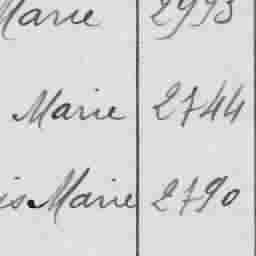 Marie 2993
Marie 2744
is Marie 2790